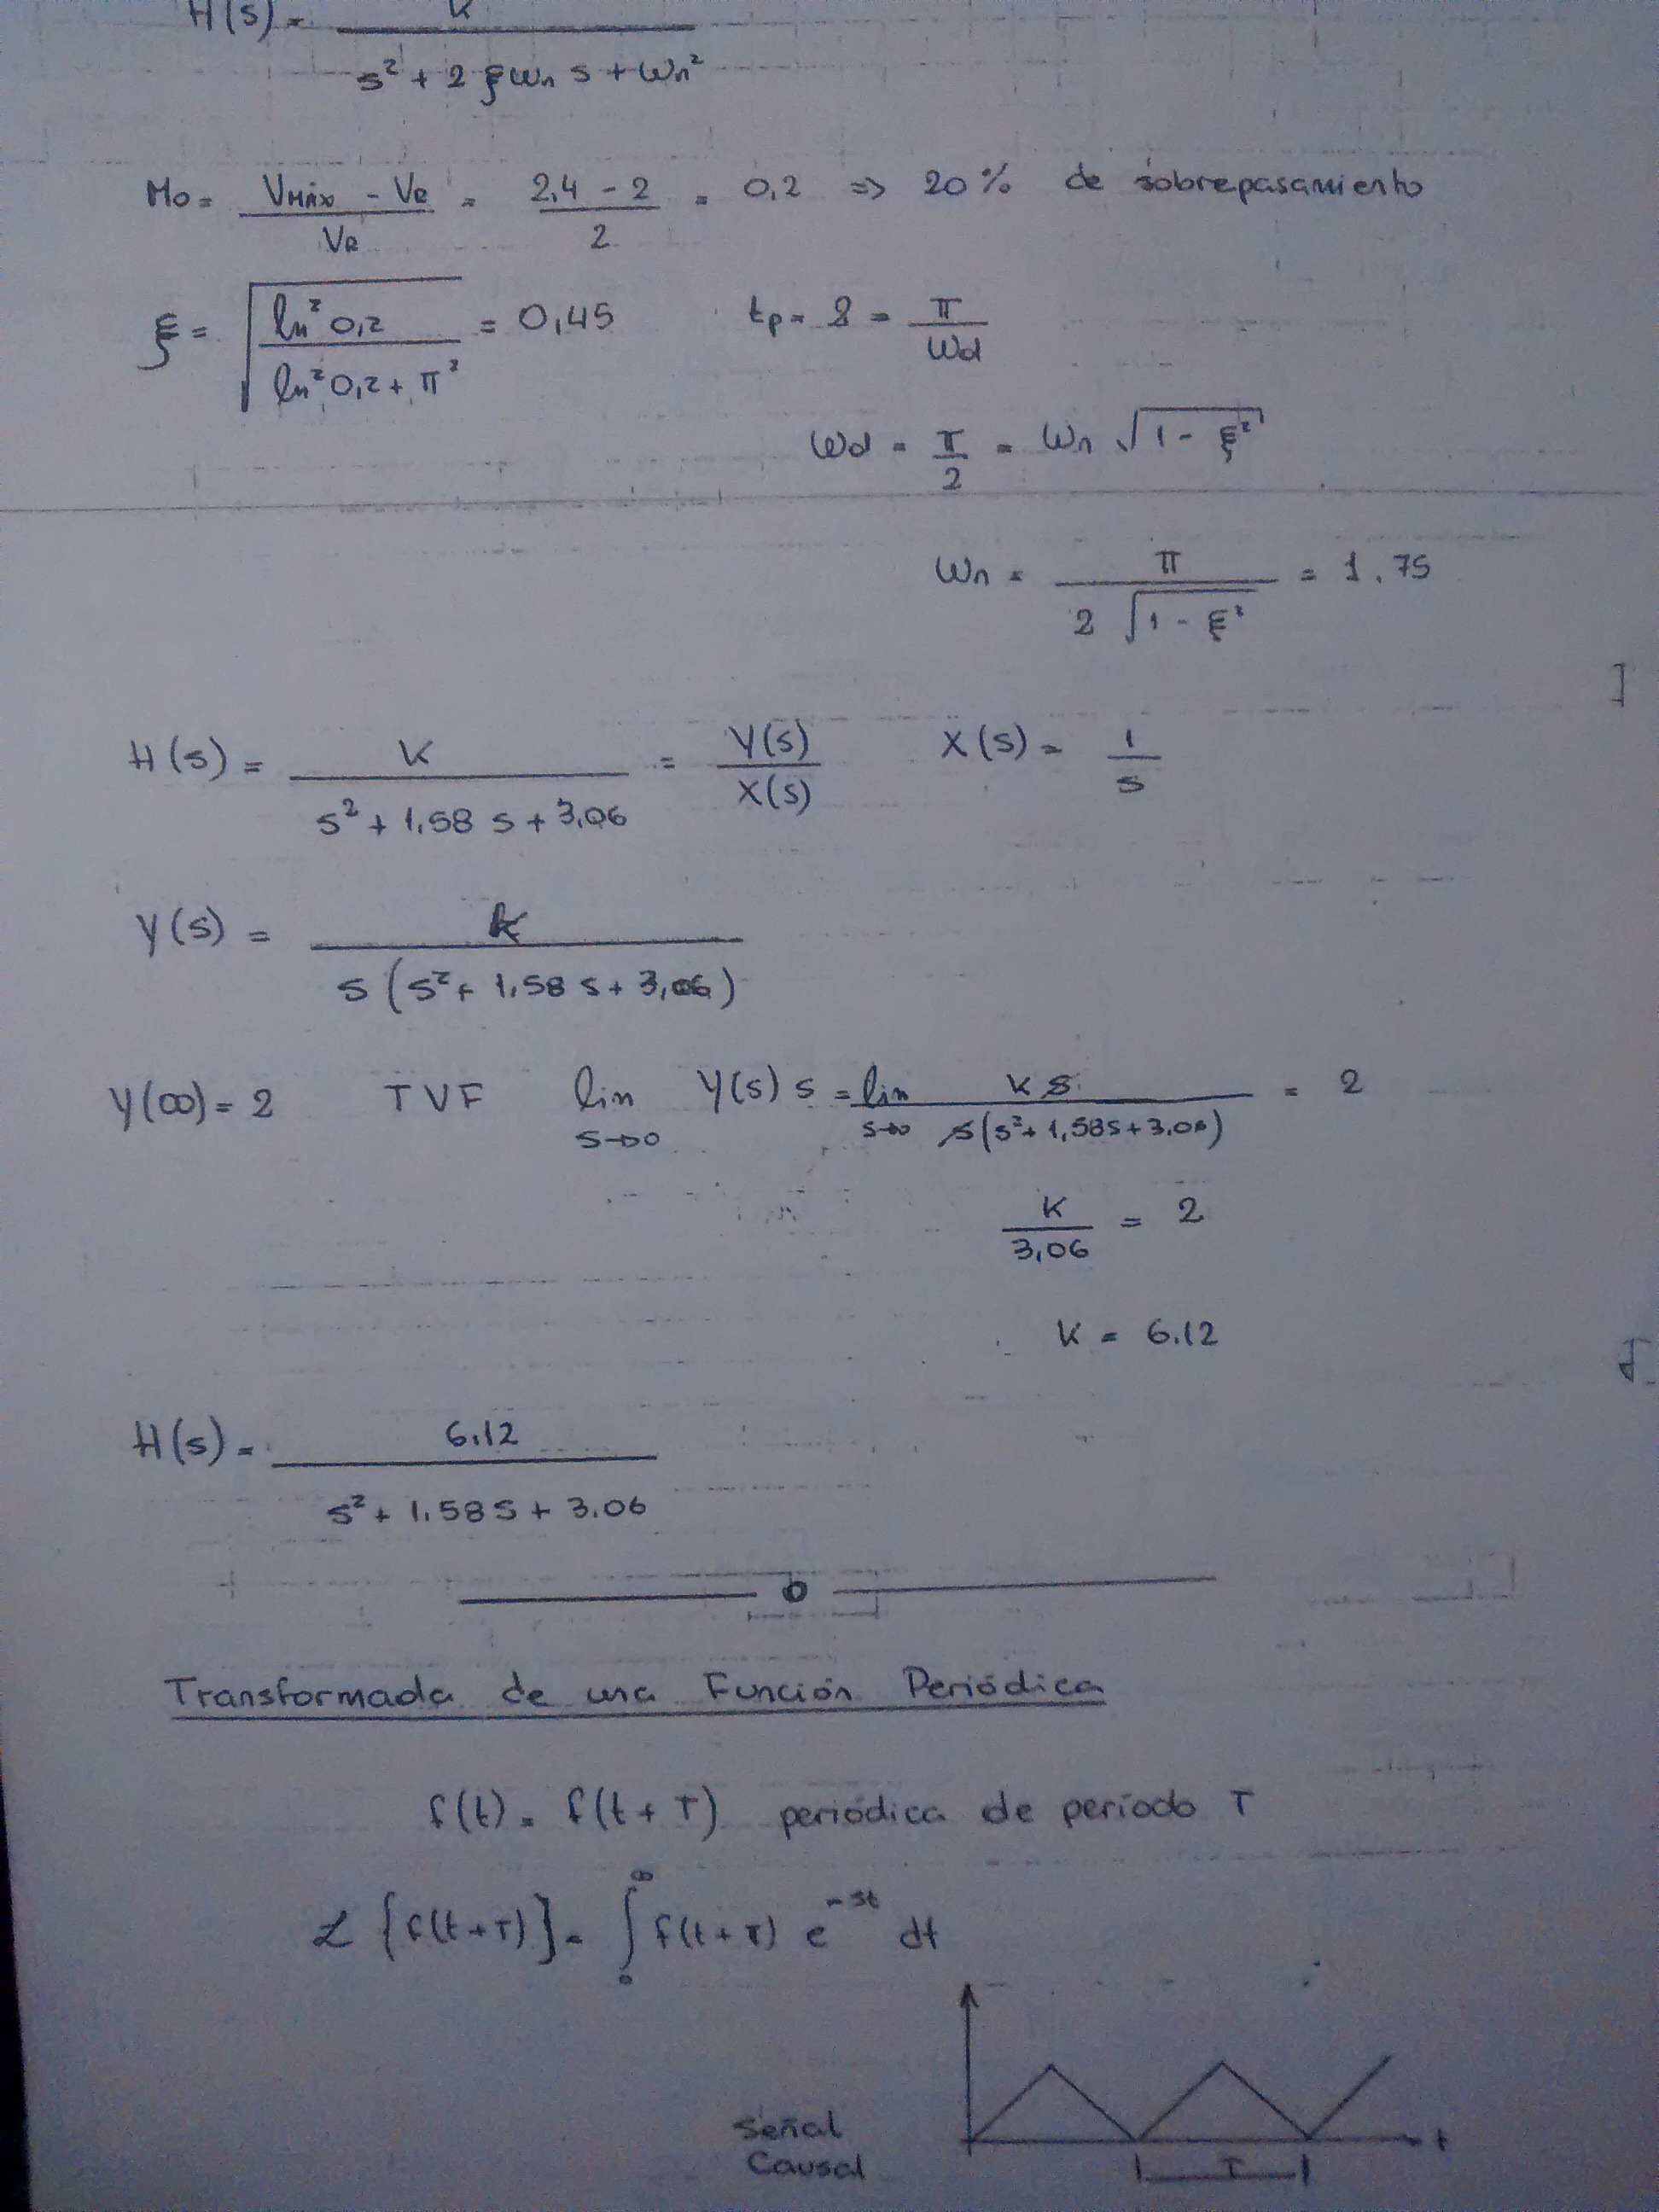 H(s) = K / (s² + 2 ξ ωn s + ωn²)
Mo = (VMáx - VR) / VR = (2,4 - 2) / 2 = 0,2 => 20% de sobrepasamiento
ξ = √(ln² 0,2 / (ln² 0,2 + π²)) = 0,45    tp = 2 = π / ωd
ωd = π / 2 = ωn √(1 - ξ²)
ωn = π / (2 √(1 - ξ²)) = 1.75
H(s) = K / (s² + 1,58 s + 3,06) = Y(s) / X(s)    X(s) = 1 / s
Y(s) = K / (s (s² + 1,58 s + 3,06))
y(∞) = 2    TVF    lim s→0 Y(s) s = lim s→0 K s / (s (s² + 1,58s + 3,06)) = 2
K / 3,06 = 2
K = 6.12
H(s) = 6.12 / (s² + 1.58 s + 3.06)
Transformada de una Función Periódica
f(t) = f(t + T) periódica de período T
ℒ {f(t+T)} = ∫₀^∞ f(t+T) e^-st dt
Señal
Causal
t
T